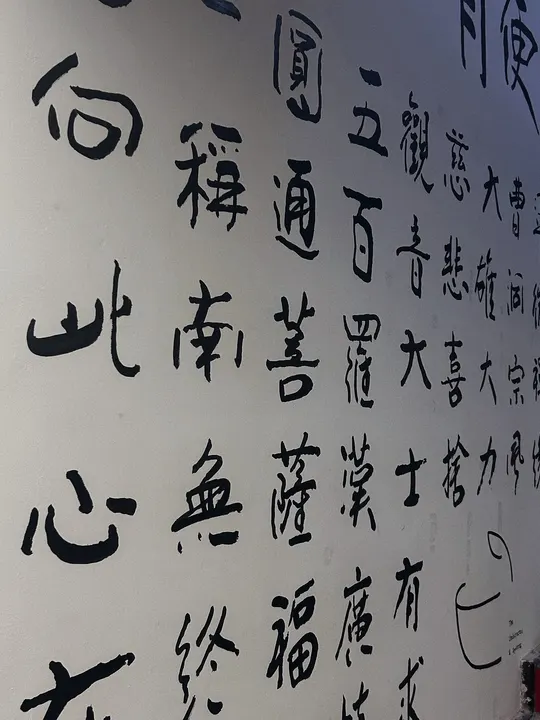 便
曹洞宗風
大雄大力
慈悲喜捨
觀音大士有求
五百羅漢廣
圓通菩薩福
稱南無終
向此心